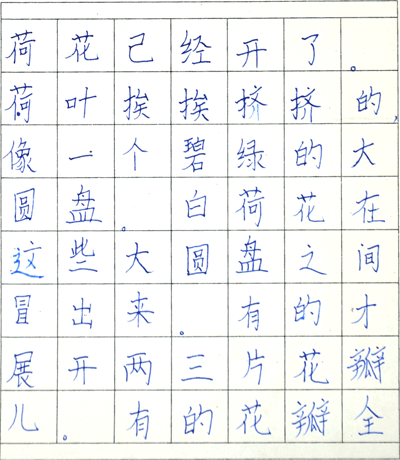 荷花己经开了。
荷叶挨挨挤挤的,
像一个碧绿的大
圆盘。白荷花在
这些大圆盘之间
冒出来。有的才
展开两三片花瓣
儿。有的花瓣全